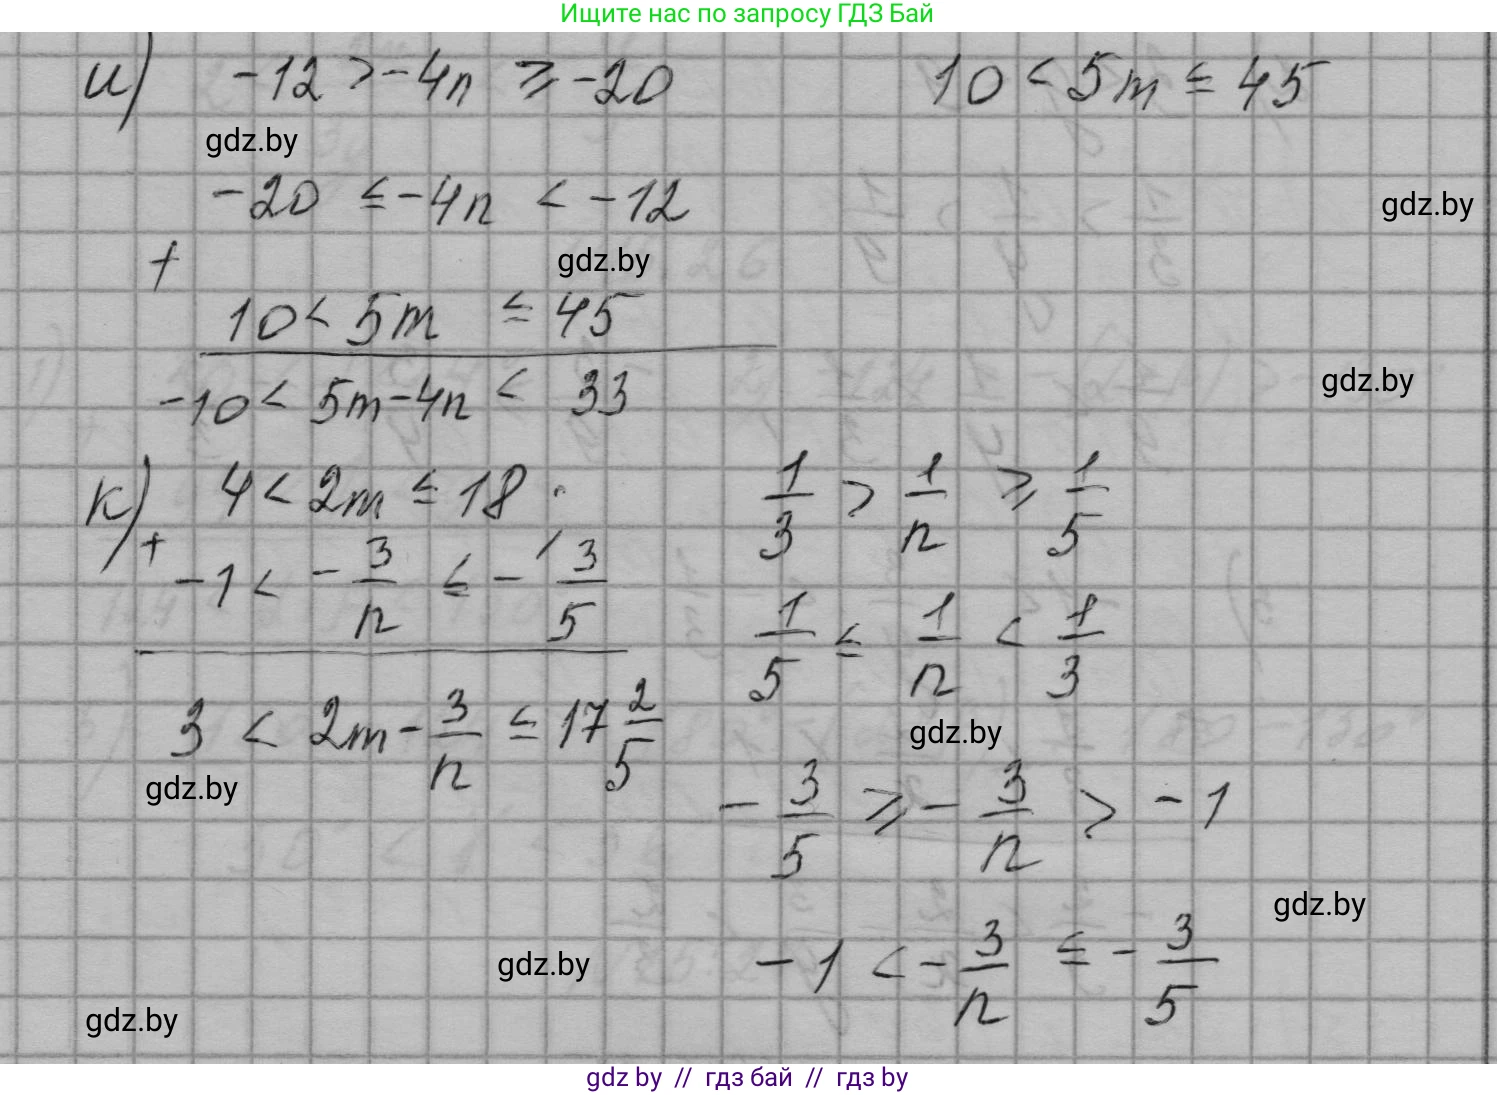 Ищите нас по запросу ГДЗ Бай
и) -12 > -4n ⩾ -20     10 < 5m ≤ 45
gdz.by
-20 ≤ -4n < -12
gdz.by
+
gdz.by
10 < 5m ≤ 45
-10 < 5m-4n < 33
gdz.by
к) 4 < 2m ≤ 18     1/3 > 1/n ⩾ 1/5
+
-1 < -3/n ≤ -3/5     1/5 ≤ 1/n < 1/3
3 < 2m - 3/n ≤ 17 2/5
gdz.by
gdz.by
-3/5 ⩾ -3/n > -1
gdz.by
-1 < -3/n ≤ -3/5
gdz.by
gdz.by
gdz by // гдз бай // гдз by